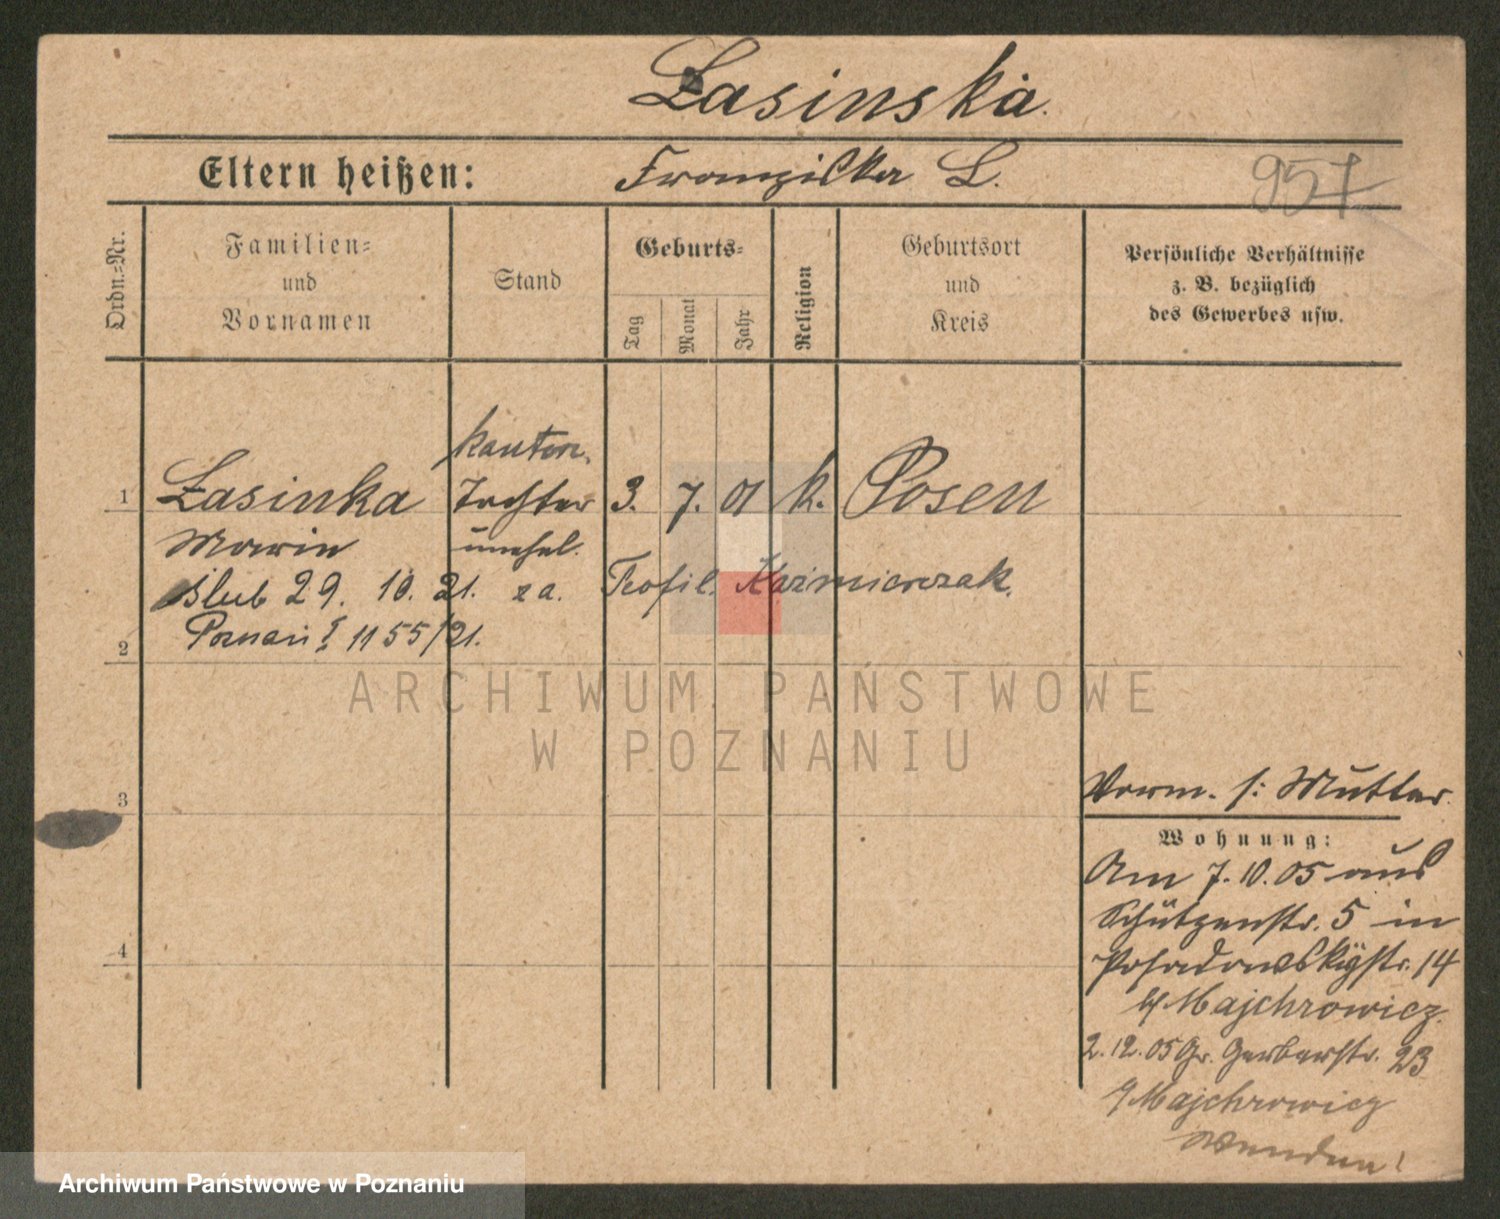 Łasinska.
Eltern heißen: Franziska L.
957
Ordn.=Nr.
Familien=
und
Vornamen
Stand
Geburts=
Tag
Monat
Jahr
Religion
Geburtsort
und
Kreis
Persönliche Verhältnisse
z. B. bezüglich
des Gewerbes usw.
1 Łasinka Tochter 3. 7. 01 k. Posen
Marie unehel.
ślub 29. 10. 21. za. Teofil Kaźmierczak.
Poznań I 1155/21.
2
3
4
Vorm. s: Mutter.
Wohnung:
Am 7.10.05 aus
Schützenstr. 5 in
Posadowskystr. 14
b/ Majchrowicz.
2.12.05 Gr. Gerberstr. 23
Majchrowicz
Wenden!
ARCHIWUM PAŃSTWOWE
W POZNANIU
Archiwum Państwowe w Poznaniu